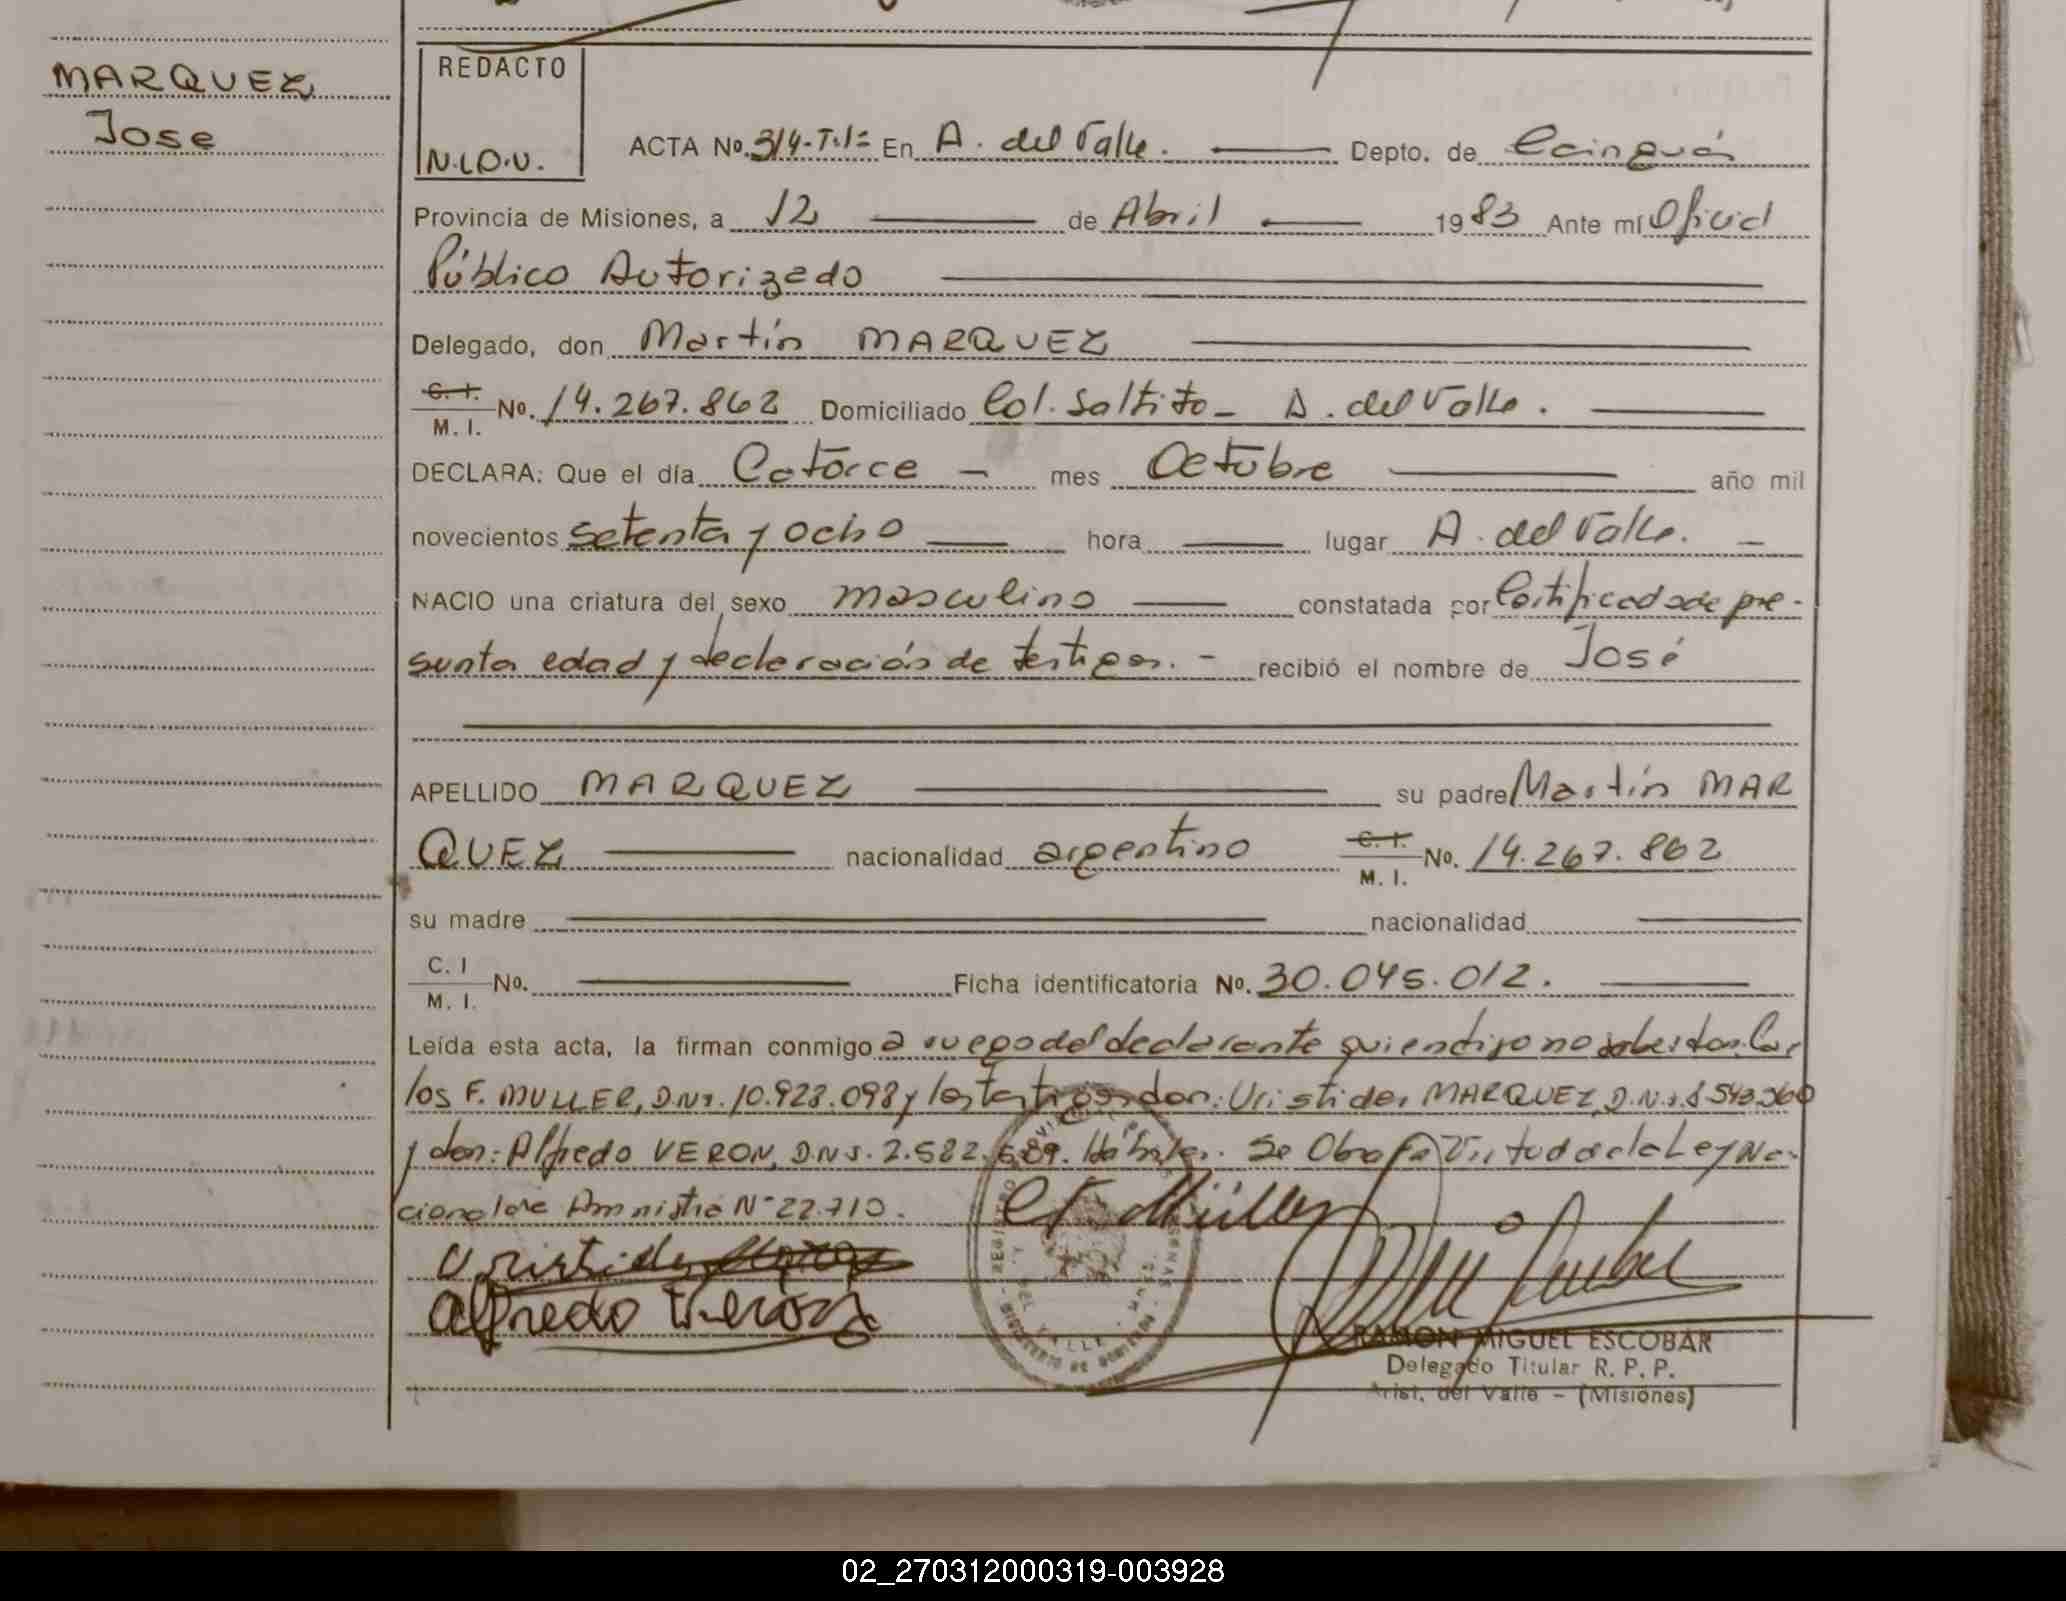 MARQUEZ
Jose
REDACTO
N.I.D.U.
ACTA No. 314-T.I= En A. del Valle. Depto. de Cainguás
Provincia de Misiones, a 12 de Abril 1983 Ante mí Oficial
Público Autorizado
Delegado, don Martín MARQUEZ
C. I.
M. I. No. 14.267.862 Domiciliado Col. Saltito - A. del Valle.
DECLARA: Que el día Catorce - mes Octubre año mil
novecientos setenta y ocho hora lugar A. del Valle. -
NACIO una criatura del sexo masculino constatada por Certificado de pre-
sunta edad y declaración de testigos. - recibió el nombre de José
APELLIDO MARQUEZ su padre Martín MAR
QUEZ nacionalidad argentino C. I.
M. I. No. 14.267.862
su madre nacionalidad
C. I
M. I. No. Ficha identificatoria No. 30.045.012.
Leída esta acta, la firman conmigo a ruego del declarante quien dijo no saber don. Car
los F. MULLER, D.N.I. 10.923.098 y los testigos don: Uristides MARQUEZ, D.N.I. 8.543.360
y don: Alfredo VERON, D.N.I. 2.582.689. Hábiles. Se Obra en Virtud de la Ley Na-
cional de Amnistia N° 22.710.
CF Müller
Uristides
alfredo
RAMON MIGUEL ESCOBAR
Delegado Titular R. P. P.
Arist. del Valle - (Misiones)
02_270312000319-003928